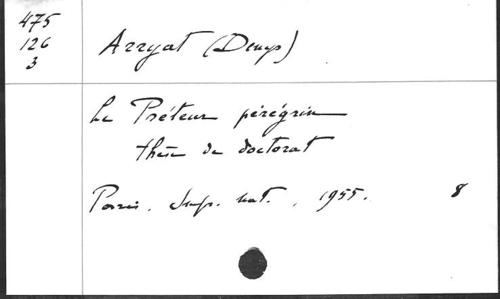 475
126
3
Arryat (Denys)
Le Préteur pérégrin
thèse de doctorat
Paris. Imp. nat., 1955. 8